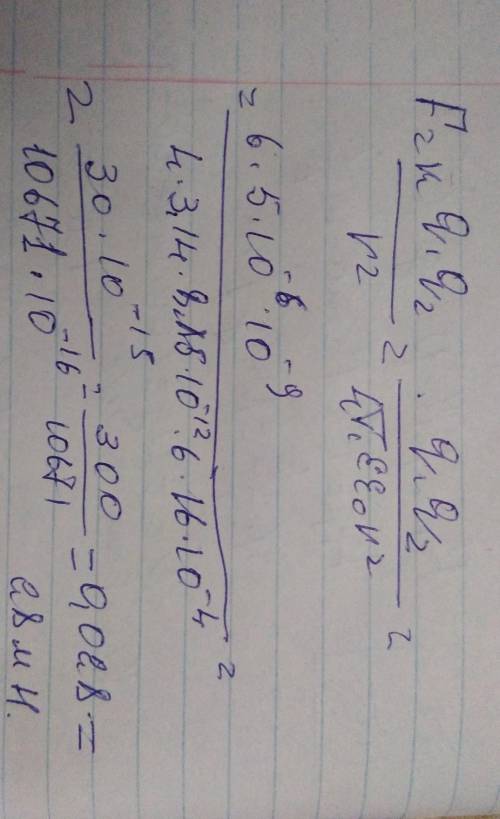 F = k q₁q₂ / r² = q₁q₂ / 4π·εε₀r² =
= 6·5·10⁻⁶·10⁻⁹ / 4·3,14·8,85·10⁻¹²·6·16·10⁻⁴ =
= 30·10⁻¹⁵ / 10671·10⁻¹⁶ = 300 / 10671 = 0,028 =
28 мН.